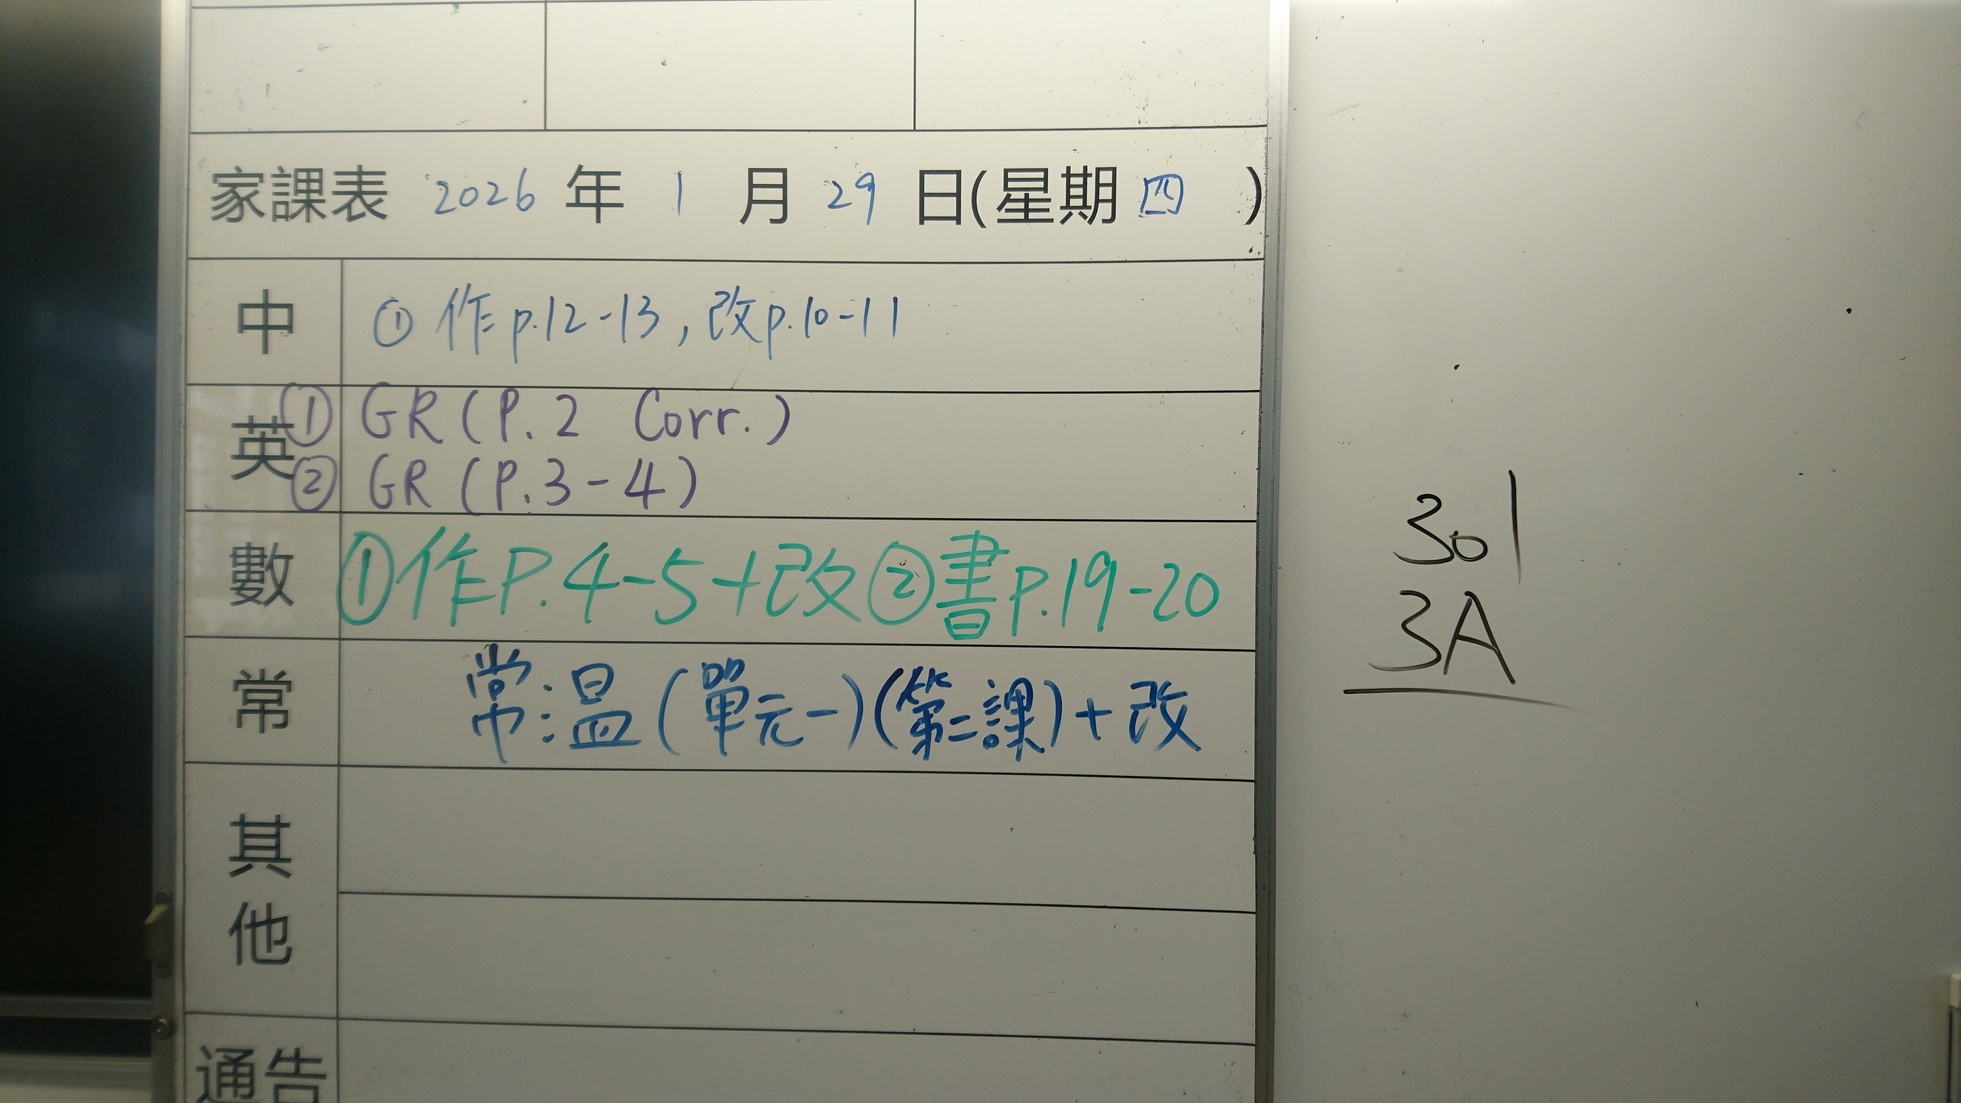 家課表 2026 年 1 月 29 日(星期 四 )
中 ① 作 p.12-13, 改 p.10-11
英 ① GR (P.2 Corr.)
② GR (P.3-4)
數 ①作P.4-5+改 ②書p.19-20
常 常:温(單元一)(第二課)+改
其他
通告
301
3A